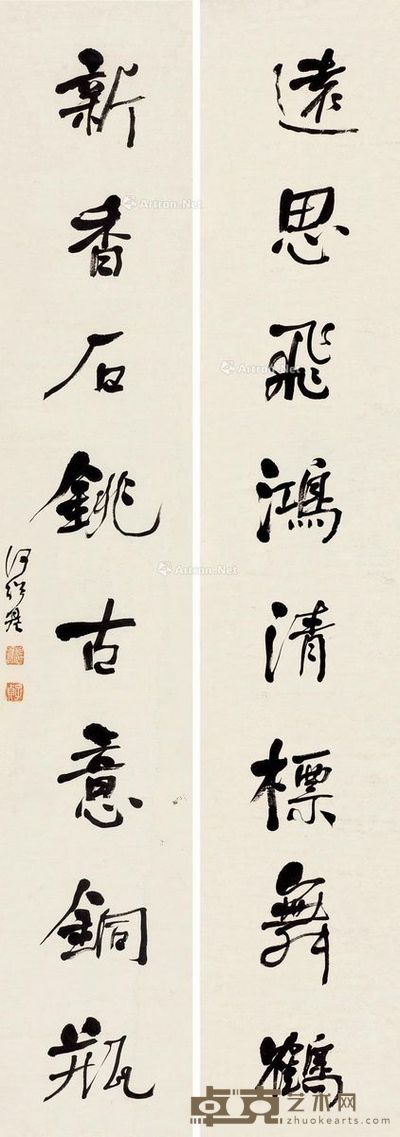 遠思飛鴻清標舞鶴
新香石銚古意銅瓶
何紹基
Artron.Net
Artron.Net
Artron.Net
卓克艺术网
zhuokearts.com